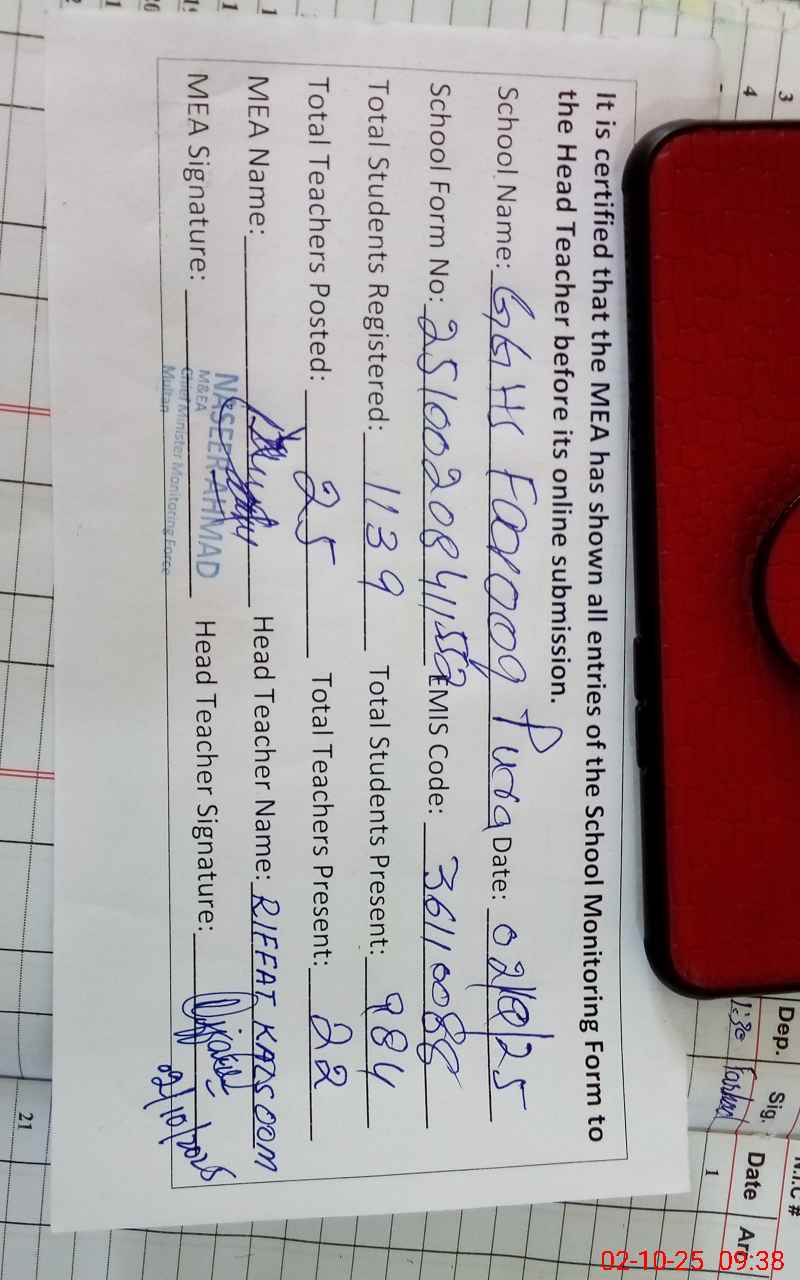 It is certified that the MEA has shown all entries of the School Monitoring Form to
the Head Teacher before its online submission.
School Name: GGHS Farooq Pura Date: 02/10/25
School Form No: EMIS Code: 36110088
Total Students Registered: 1139 Total Students Present: 984
Total Teachers Posted: 25 Total Teachers Present: 22
MEA Name: Head Teacher Name: RIFFAT KALSOOM
MEA Signature: Head Teacher Signature:
NASEER AHMAD
M&EA
Chief Minister Monitoring Force
Multan
02/10/2025
3
4
Dep. Sig.
N.I.C #
Date
1
21
02-10-25 09:38